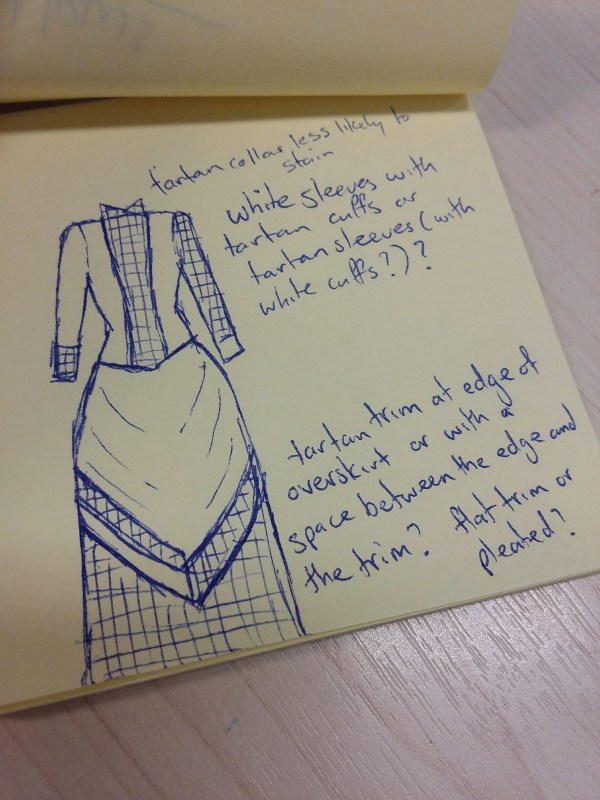 tartan collar less likely to
stain
white sleeves with
tartan cuffs or
tartan sleeves (with
white cuffs?)?
tartan trim at edge of
overskirt or with a
space between the edge and
the trim? flat trim or
pleated?